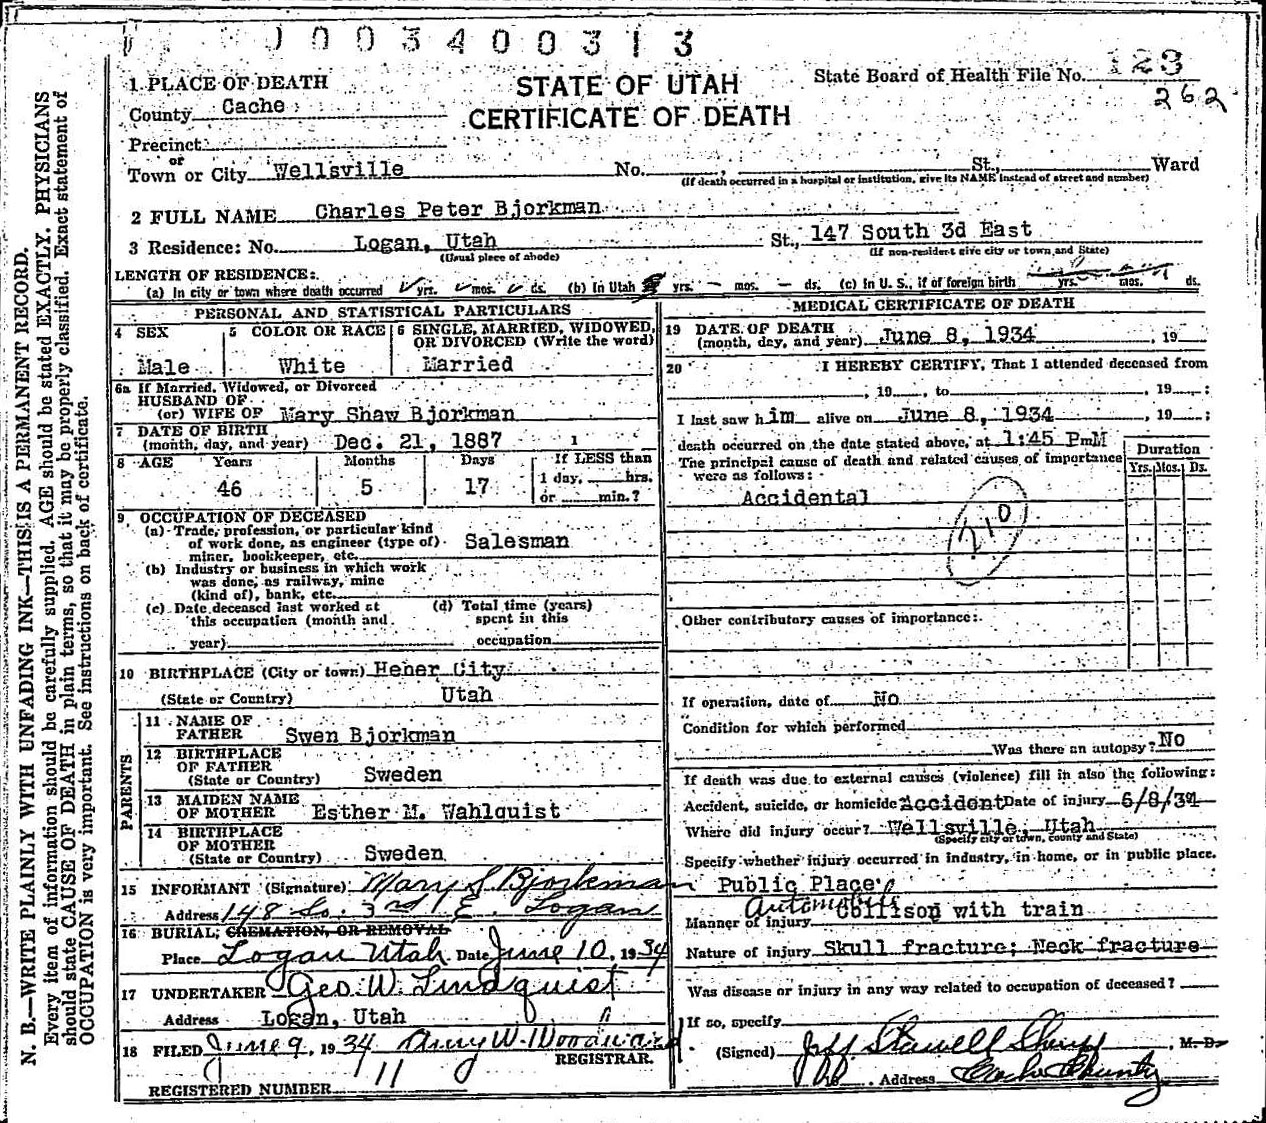 J 0 0 3 4 0 0 3 1 3
1 PLACE OF DEATH
STATE OF UTAH
CERTIFICATE OF DEATH
State Board of Health File No. 123
262
County Cache
Precinct
or
Town or City Wellsville No. , St., Ward
(If death occurred in a hospital or institution, give its NAME instead of street and number)
2 FULL NAME Charles Peter Bjorkman
3 Residence: No. Logan, Utah St., 147 South 3d East
(Usual place of abode) (If non-resident give city or town and State)
LENGTH OF RESIDENCE:
(a) In city or town where death occurred yrs. mos. ds. (b) In Utah yrs. – mos. – ds. (c) In U. S., if of foreign birth yrs. mos. ds.
PERSONAL AND STATISTICAL PARTICULARS
4 SEX
Male
5 COLOR OR RACE
White
6 SINGLE, MARRIED, WIDOWED,
OR DIVORCED (Write the word)
Married
6a If Married, Widowed, or Divorced
HUSBAND OF
(or) WIFE OF Mary Shaw Bjorkman
7 DATE OF BIRTH
(month, day, and year) Dec. 21, 1887
8 AGE Years Months Days If LESS than
1 day, hrs.
46 5 17
or min.?
9 OCCUPATION OF DECEASED
(a) Trade, profession, or particular kind
of work done, as engineer (type of) Salesman
miner, bookkeeper, etc.
(b) Industry or business in which work
was done, as railway, mine
(kind of), bank, etc.
(c) Date deceased last worked at
this occupation (month and
year)
(d) Total time (years)
spent in this
occupation
10 BIRTHPLACE (City or town) Hener City
(State or Country) Utah
PARENTS
11 NAME OF
FATHER Swen Bjorkman
12 BIRTHPLACE
OF FATHER
(State or Country) Sweden
13 MAIDEN NAME
OF MOTHER Esther M. Wahlquist
14 BIRTHPLACE
OF MOTHER
(State or Country) Sweden
15 INFORMANT (Signature) Mary S. Bjorkman
Address 148 So. 3rd E. Logan
16 BURIAL, CREMATION, OR REMOVAL
Place Logan Utah Date June 10, 1934
17 UNDERTAKER Geo. W. Lindquist
Address Logan, Utah
18 FILED June 9, 1934 W. Woodward
REGISTRAR.
REGISTERED NUMBER 11
MEDICAL CERTIFICATE OF DEATH
19 DATE OF DEATH
(month, day, and year) June 8, 1934 , 19
20 I HEREBY CERTIFY, That I attended deceased from
, 19 , to , 19 :
I last saw him alive on June 8, 1934 , 19 ;
death occurred on the date stated above, at 1:45 PmM
The principal cause of death and related causes of importance
were as follows:
Duration
Yrs. Mos. Ds.
Accidental
210
Other contributory causes of importance:
If operation, date of No
Condition for which performed
Was there an autopsy? No
If death was due to external causes (violence) fill in also the following:
Accident, suicide, or homicide Accident Date of injury 6/8/34
Where did injury occur? Wellsville, Utah
(Specify city or town, county and State)
Specify whether injury occurred in industry, in home, or in public place.
Public Place
Automobile
Manner of injury Collison with train
Nature of injury Skull fracture; Neck fracture
Was disease or injury in any way related to occupation of deceased?
If so, specify
(Signed) Jeff Stowell Sheriff , M. D.
Address Cache County
N. B.—WRITE PLAINLY WITH UNFADING INK—THIS IS A PERMANENT RECORD.
Every item of information should be carefully supplied. AGE should be stated EXACTLY. PHYSICIANS
should state CAUSE OF DEATH in plain terms, so that it may be properly classified. Exact statement of
OCCUPATION is very important. See instructions on back of certificate.